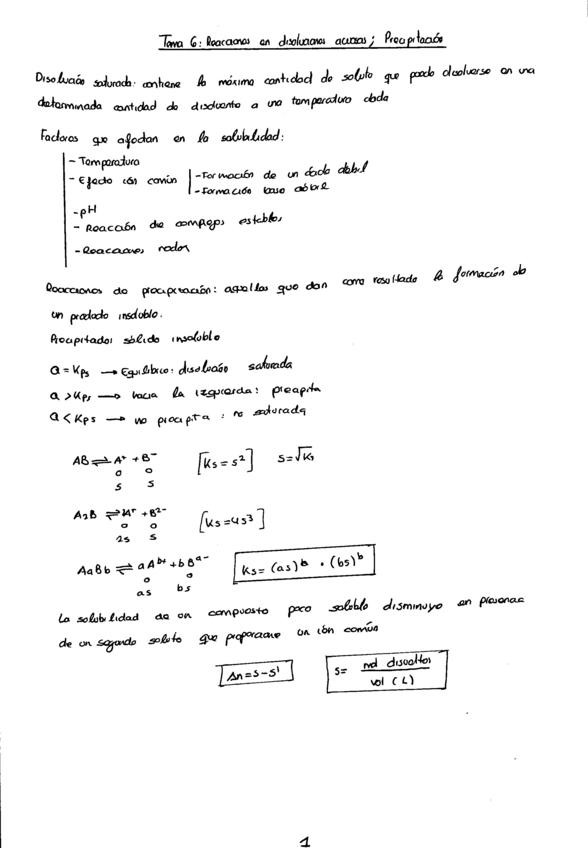 Tema 6: Reacciones en disoluciones acuosas; Precipitación
Disolución saturada: contiene la máxima cantidad de soluto que puede disolverse en una
determinada cantidad de disolvente a una temperatura dada
Factores que afectan en la solubilidad:
- Temperatura
- Efecto ión común | - Formación de un ácido débil
- Formación base débil
- pH
- Reacción de complejos estables
- Reacciones redox
Reacciones de precipitación: aquellas que dan como resultado la formación de
un producto insoluble.
Precipitado: sólido insoluble
Q = Kps → Equilibrio: disolución saturada
Q > Kps → hacia la izquierda: precipita
Q < Kps → no precipita: no saturada
AB ⇌ A⁺ + B⁻ [Ks = s²] S = √Ks
0 0
s s
A₂B ⇌ 2A⁺ + B²⁻ [Ks = 4s³]
0 0
2s s
AaBb ⇌ aAᵇ⁺ + bBᵃ⁻ Ks = (as)ᵇ · (bs)ᵇ
0 0
as bs
La solubilidad de un compuesto poco soluble disminuye en presencia
de un segundo soluto que proporcione un ión común
Δn = S - S' S = mol disueltos / vol (L)
1